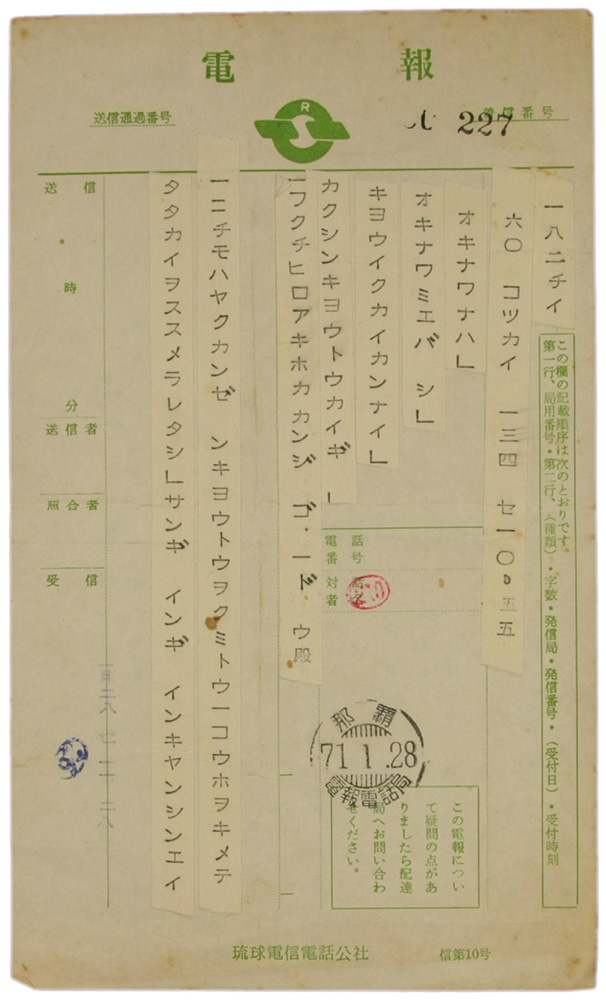 電報
送信通過番号
R
着信番号
227
この欄の記載順序は次のとおりです。
第一行、局用番号・第二行、(種類)・字数・発信局・発信番号・(受付日)・受付時刻
一八二チイ
六〇 コツカイ 一三四 セ一〇、五五
オキナワナハ」
オキナワミエバシ」
キヨウイクカイカンナイ」
カクシンキヨウトウカイギー
フクチヒロアキホカカンジゴ一ドウ殿
一ニチモハヤクカンゼンキヨウトウヲクミトウ一コウホヲキメテ
タタカイヲススメラレタシ」サンギインギインキヤンシンエイ
電話番号
対
者
送信
時
分
送信者
照合者
受信
那覇
71.1.28
電報電話局
この電報につい
て疑問の点があ
りましたら配達
局へお問い合わ
せください。
琉球電信電話公社
信第10号